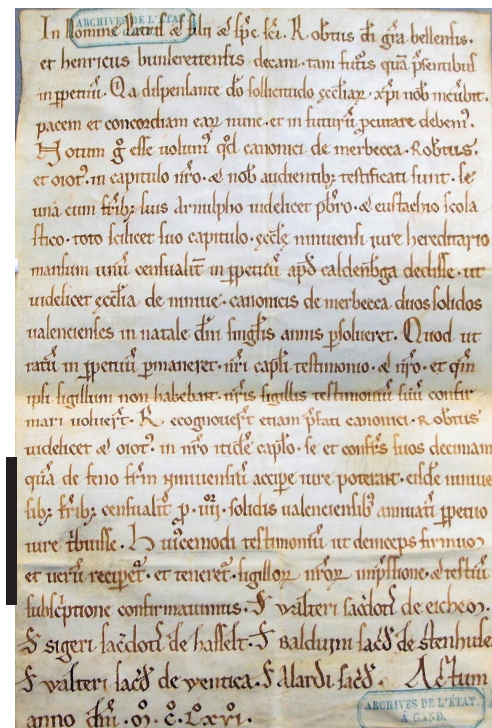 In Nomine Patris ⁊ filii ⁊ sp̄c sc̄i. Robtus di gr̄a bellensis.
et henricus bunlerettensis decani. tam futis quā p̄sentibus
in ꝑpetuū. Qa dispensante dō sollicitudo ęccliaꝝ xp̄i nob meūbit.
pacem et concordiam eaꝝ nunc. et in futurū ꝓcurare debem᷒.
Notum g̊ esse volum᷒ qd̄ canonici de merbecca. Robtus
et oiot᷒. in capitulo nr̄o. ⁊ nob audientibꝫ testificati sunt. se
una cum fr̄ibꝫ suis Arnulpho uidelicet pb̄ro. ⁊ eustachio scola
stico. toto scilicet suo capitulo. ęccłę niniuensi iure hereditario
mansum unū censualit̄ in ꝑpetuū apd̄ caldenb̄ga dedisse. ut
uidelicet ęcclia de niniue. canonicis de merbecca duos solidos
ualencienses in natale dn̄i singlis annis ꝑsolueret. Quod ut
ratū in ꝑpetuū ꝑmaneret. nr̄i capłi testimonio. ⁊ nr̄o. et qm̄
ipsi sigillum non habebant. nr̄is sigillis testimoniū suū confir
mari voluer̄t. Recognouer̄t etiam p̄fati canonici. Robtus
uidelicet ⁊ oiot᷒. in nr̄o itide capło. se et confr̄s suos decimam
quā de feno fr̄m niniuensiū accipe iure poterant. eisdē niniuen
sibꝫ fr̄ibꝫ censualit̄ ꝓ .iiii. solidis ualenciensibꝫ annuati ꝑpetuo
iure tbuisse. Huiꝰcemodi testimoniū ut deinceps firmum
et uerū reciper̄. et teneret̄. sigilloꝝ nr̄oꝝ imp̄ssione. ⁊ testiū
subscptione confirmauimus. S valteri sac̄dot̄ de eichem.
S sigeri sac̄dot̄ de hasselt. S Balduini sac̄d de stenhuse
S valteri sac̄d de ventica. S Alardi sac̄d. Actum
anno dn̄i .M. C. LXVI.
ARCHIVES DE L'ÉTAT
ARCHIVES DE L'ÉTAT.
A GAND.